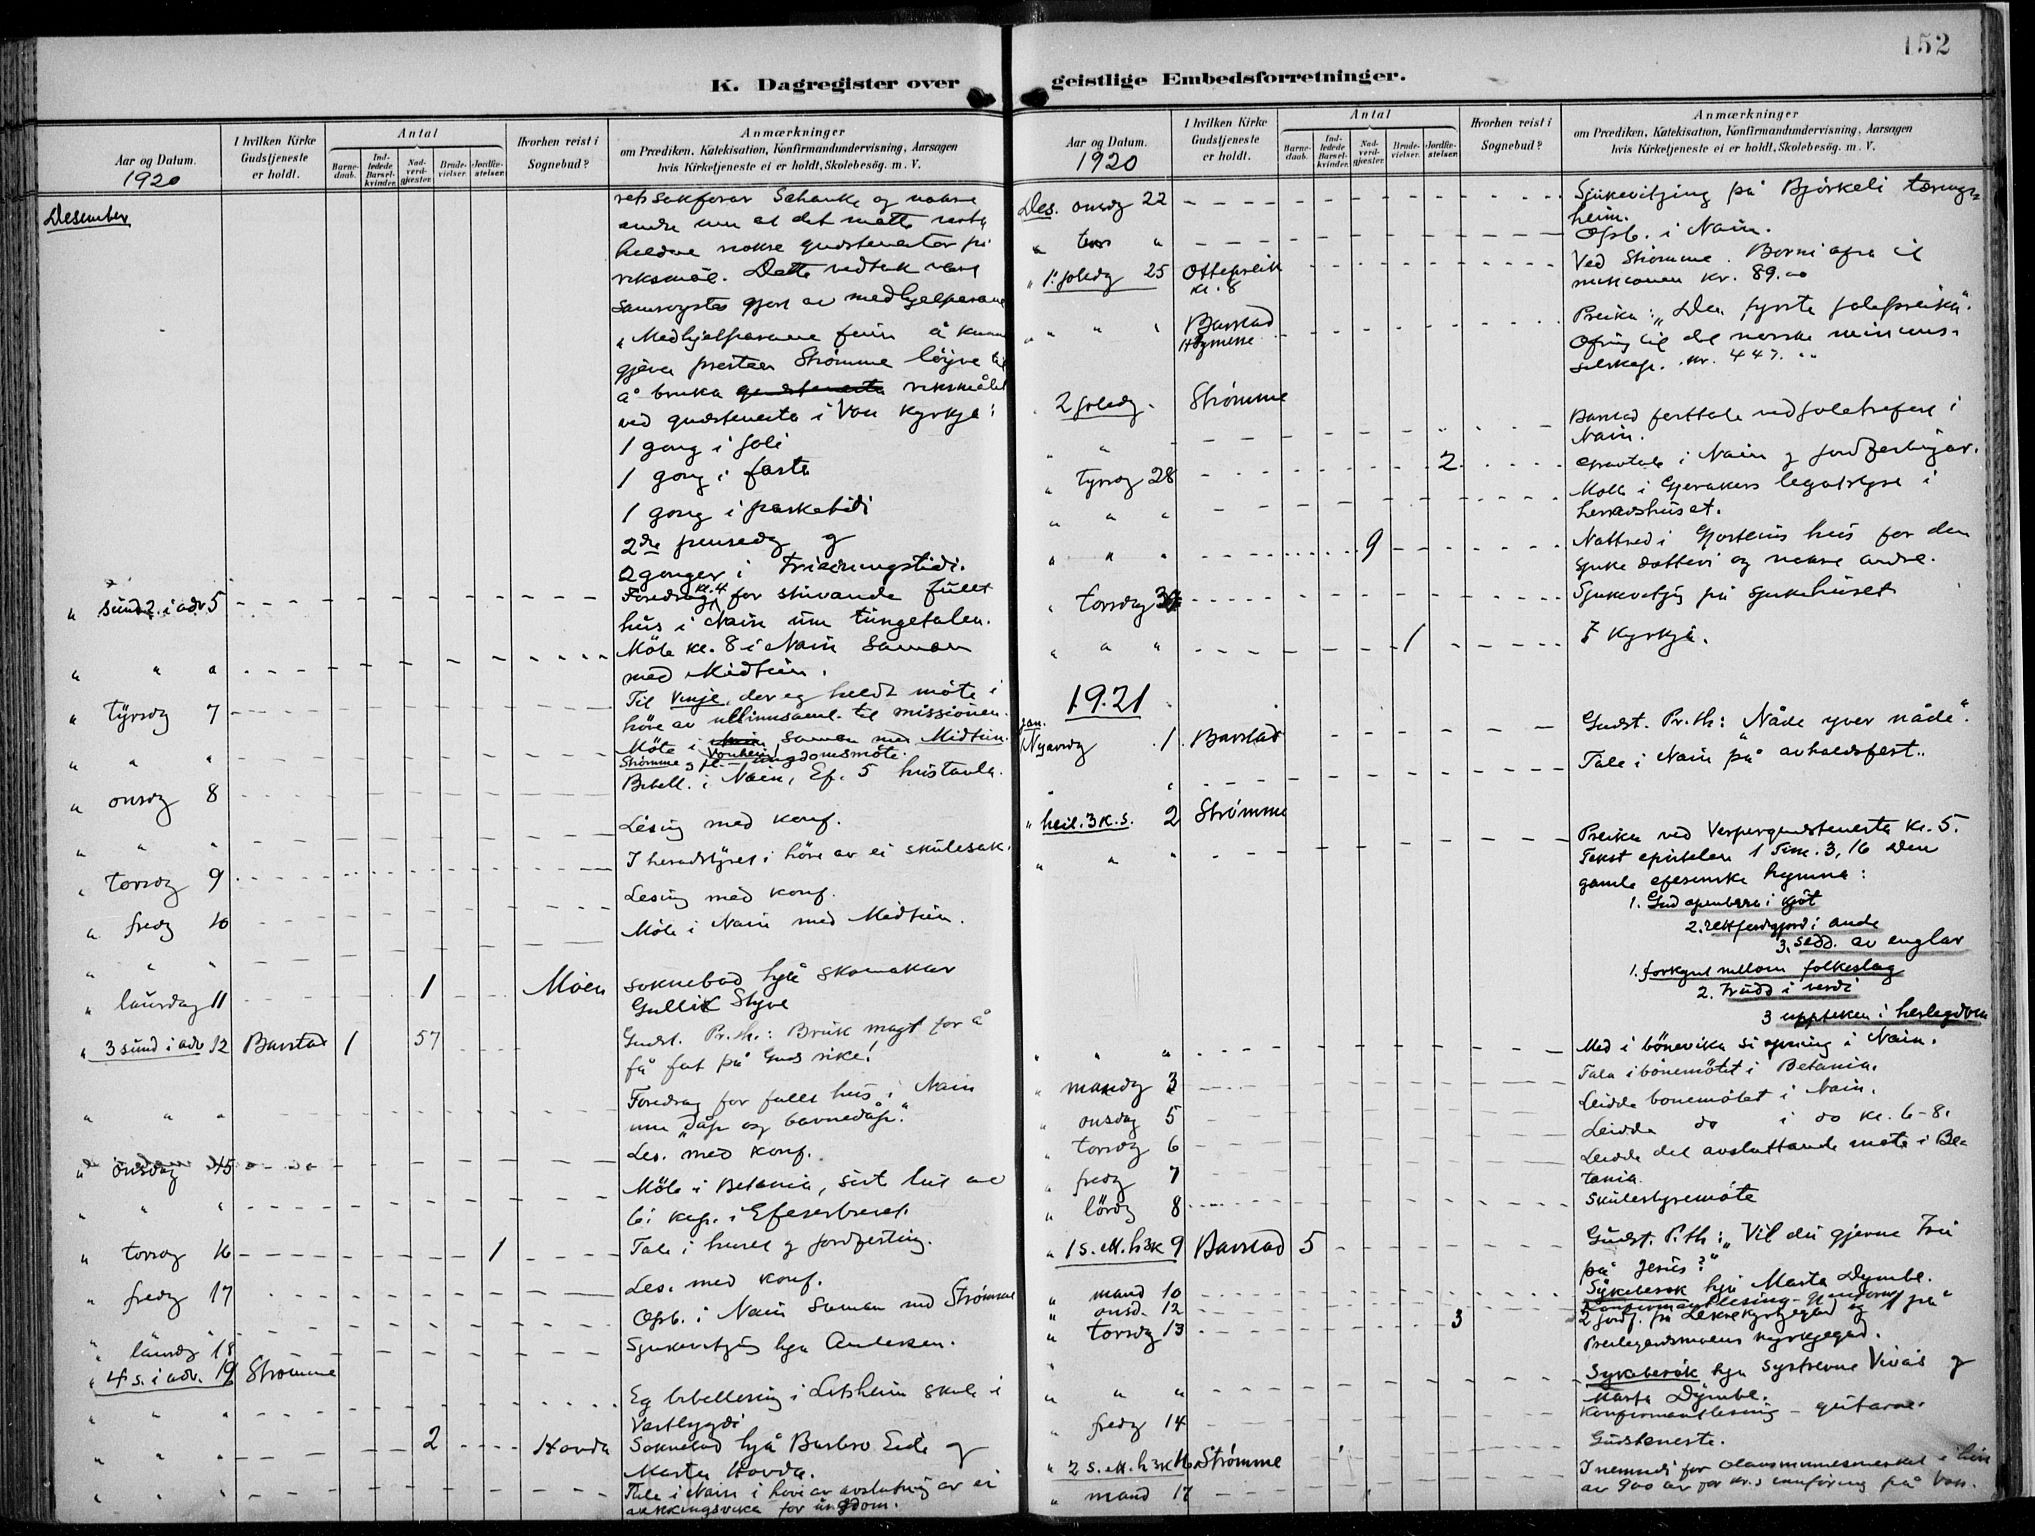 152
K. Dagregister over
geistlige Embedsforretninger.
Aar og Datum.
1920
I hvilken Kirke
Gudstjeneste
er holdt.
Antal
Barne-
daab.
Ind-
ledede
Barsel-
kvinder.
Nad-
verd-
gjester.
Brude-
vielser.
Jordfæ-
stelser.
Hvorhen reist i
Sognebud?
Anmærkninger
om Prædiken, Katekisation, Konfirmandundervisning, Aarsagen
hvis Kirketjeneste ei er holdt, Skolebesøg. m. V.
Desember
retssakførar Schanke og nokre
andre um at det måtte verta
haldne nokre gudstenester på
riksmål. Dette vedtak vart
samrøystes gjort av medhjelparane
"Medhjelparane finn å kunna
gjeva presten Strømme löyve til
å bruka gudstenesta riksmålet
ved gudstenesta i Voss kyrkja:
1 gong i joli
1 gong i fasta
1 gong i påsketidi
2dre pinsedag og
2 gonger i Trieiningstidi.
" sund 2. i adv 5
Foredrag kl. 4 for stuvande fullt
hus i Nain um tungetalen.
" " "
Möte kl. 8 i Nain saman
med Midttun.
" Tyrsdg 7
Til Vinje, der eg heldt möte i
höve av ullinnsaml. til missionen.
" " "
Möte i Nain saman med Midttun.
Vonheim
Strømme og ungdomsmöte.
" onsdg 8
Bibell. i Nain, Ef. 5 hustavla.
" " "
Lesing med konf.
" Torsdg 9
I heradstyret i höve av ei skulesak.
" fredg 10
Lesing med konf.
" " "
Möte i Nain med Midttun.
" laurdag 11
1
Möen
Soknebod hjå skomakar
Gullik Styve
" 3 sund i adv 12
Barstad
1
57
Gudst. Pr. th.: Bruk magt for å
få fat på Guds rike!
" " "
Foredrag for fullt hus i Nain
um "dåp og barnedåp."
" onsdag 15
Les. med konf.
" " "
Möte i Betania, sist lut av
6i kap. i Efeserbrevet.
" torsdg 16
1
Tale i huset og jordfesting.
" fredg 17
Les. med konf.
Opb. i Nain saman med Strømme
" laurdg 18
Sjukevitjing hjå Andersen.
" 4 s. i adv. 19
Strømme
" " "
Eg bibellesing i Litsheim skule i
Vastbygdi
" " "
2
Hovda
Soknebod hjå Barbro Eide og
Marta Hovda.
" " "
Tale i Nain i höve av avslutning av ei
vekkingsvika for ungdom.
Aar og Datum.
1920
I hvilken Kirke
Gudstjeneste
er holdt.
Antal
Barne-
daab.
Ind-
ledede
Barsel-
kvinder.
Nad-
verd-
gjester.
Brude-
vielser.
Jordfæ-
stelser.
Hvorhen reist i
Sognebud?
Anmærkninger
om Prædiken, Katekisation, Konfirmandundervisning, Aarsagen
hvis Kirketjeneste ei er holdt, Skolebesøg. m. V.
Des. onsdg 22
Sjukevitjing på Bjørkeli tærings-
heim.
" tors "
Opb. i Nain.
" 1. joledg 25
Ottepreik
kl. 8
Ved Strømme. Borni ofra til
misjonen kr. 89.00
" " "
Barstad
Högmesse
Preika: "Den fyrste jolepreika".
Ofring til det norske misjons-
selskap. kr. 447.
2 joledg.
Strømme
" "
Barstad festtale ved joletrefest i
Nain.
" Tyrsdg 28
2
Gravtale i Nain og jordfestingar.
" " "
Möte i Gjerakers legatstyre i
heradshuset.
" " "
9
Nattverd i Gjosteins hus for den
sjuke dotteri og nokre andre.
" Torsdg 30
Sjukevitjing på sjukehuset
" " "
1
I kyrkja.
1921
Jan.
Nyårsdg 1
Barstad
Gudst. Pr. th: "Nåde yver nåde".
" "
Tale i Nain på avhaldsfest.
" heil. 3 k. s. 2
Strømme
" " "
Preika ved Vespergudstenesta kl. 5.
Tekst epistelen 1 Tim. 3, 16 Den
gamle efesenske hymna:
1. Gud openberra i kjöt
2. rettferdgjord i ande
3. sedd av englar
1. forkynt millom folkeslag
2. trudd i verdi
3 uppteken i herlegdom
" " "
Med i bönevika si opning i Nain.
" mandg 3
Tala i bönemötet i Betania.
" onsdag 5
Leidde bönemötet i Nain.
" torsdg 6
Leidde do i do kl. 6-8.
" fredg 7
Leidde det avsluttande möte i Be-
tania.
" lördg 8
Skulestyremöte
" 1 s. ett. h3k 9
Barstad
5
Gudst. P. th: "Vil du gjerne tru
på Jesus?"
" mand 10
Sykebesök hjå Marta Dymbe.
" onsd. 12
Konfirmantlesing - gjentorne
" Torsdg 13
3
2 jordf. på Lekvekyrkjegard og 1 på
Prestegardsmoens kyrkjegard.
" " "
Sykebesök hjå systrene Vivås og
Marta Dymbe.
" fredg 14
Konfirmantlesing - gutarne.
" 2 s. ett. h3k 16
Strømme
Gudsteneste.
" mand 17
I nemndi for Olavsminnesmerket i höve
av 900 år for kr.s innföring på Voss.